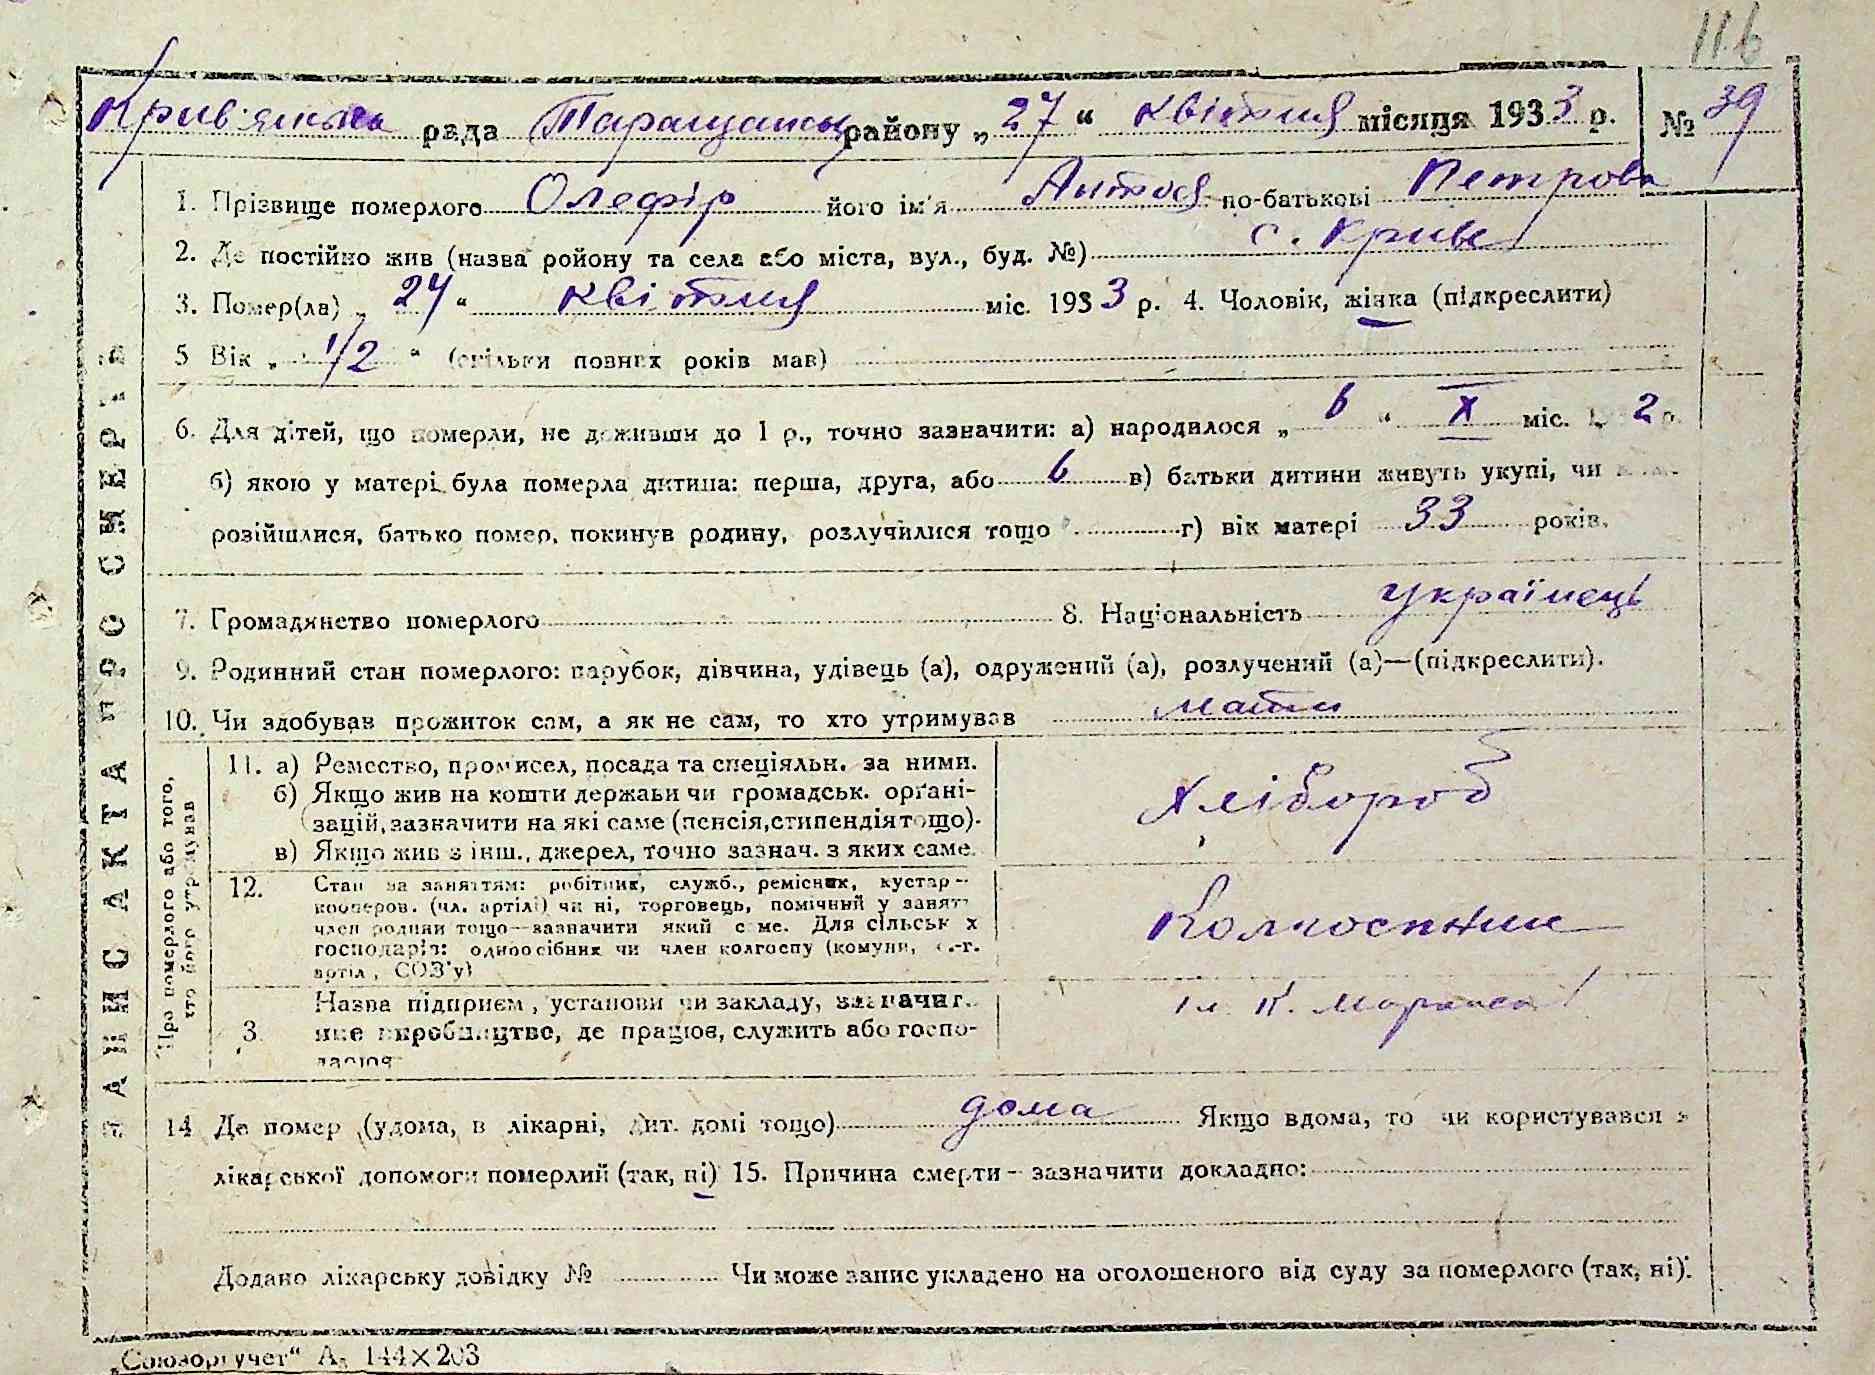 116
Крив'янська рада Таращансь району „27“ квітня місяця 1933 р. № 39
1. Прізвище померлого Олефір його ім'я Антося по-батькові Петрова
2. Де постійно жив (назва ройону та села або міста, вул., буд. №) с. Криве
3. Помер(ла) „24“ квітня міс. 1933 р. 4. Чоловік, жінка (підкреслити)
5 Вік „1/2“ (скільки повних років мав)
6. Для дітей, що померли, не доживши до 1 р., точно зазначити: а) народилося „6“ X міс. 2 р.
б) якою у матері була померла дитина: перша, друга, або 6 в) батьки дитини живуть укупі, чи
розійшлися, батько помер, покинув родину, розлучилися тощо г) вік матері 33 років.
7. Громадянство померлого 8. Національність українець
9. Родинний стан померлого: парубок, дівчина, удівець (а), одружений (а), розлучений (а)—(підкреслити).
10. Чи здобував прожиток сам, а як не сам, то хто утримував мати
ЗАПИС АКТА ПРО СМЕРТЬ
Про померлого або того,
хто його утримував
11. а) Ремество, промисел, посада та спеціяльн. за ними.
б) Якщо жив на кошти держави чи громадськ. орґані-
зацій, зазначити на які саме (пенсія, стипендія тощо).
в) Якщо жив з інш., джерел, точно зазнач. з яких саме.
Хлібороб
12. Стан за заняттям: робітник, служб., ремісник, кустар-
кооперов. (чл. артілі) чи ні, торговець, помічний у занят
член родини тощо—зазначити який саме. Для сільськ х
господарів: одноосібних чи член колгоспу (комуни, с.-г.
артіл, СОЗ'у)
Колгоспник
3. Назва підприєм, установи чи закладу, зазначит.
яке виробництво, де працює, служить або госпо-
дарює
ім. К. Маркса
14 Де помер (удома, в лікарні, дит. домі тощо) дома Якщо вдома, то чи користувався з
лікарської допомоги померлий (так, ні) 15. Причина смерти – зазначити докладно:
Додано лікарську довідку № Чи може запис укладено на оголошеного від суду за померлого (так, ні).
„Союзоргучет“ А₅ 144×203